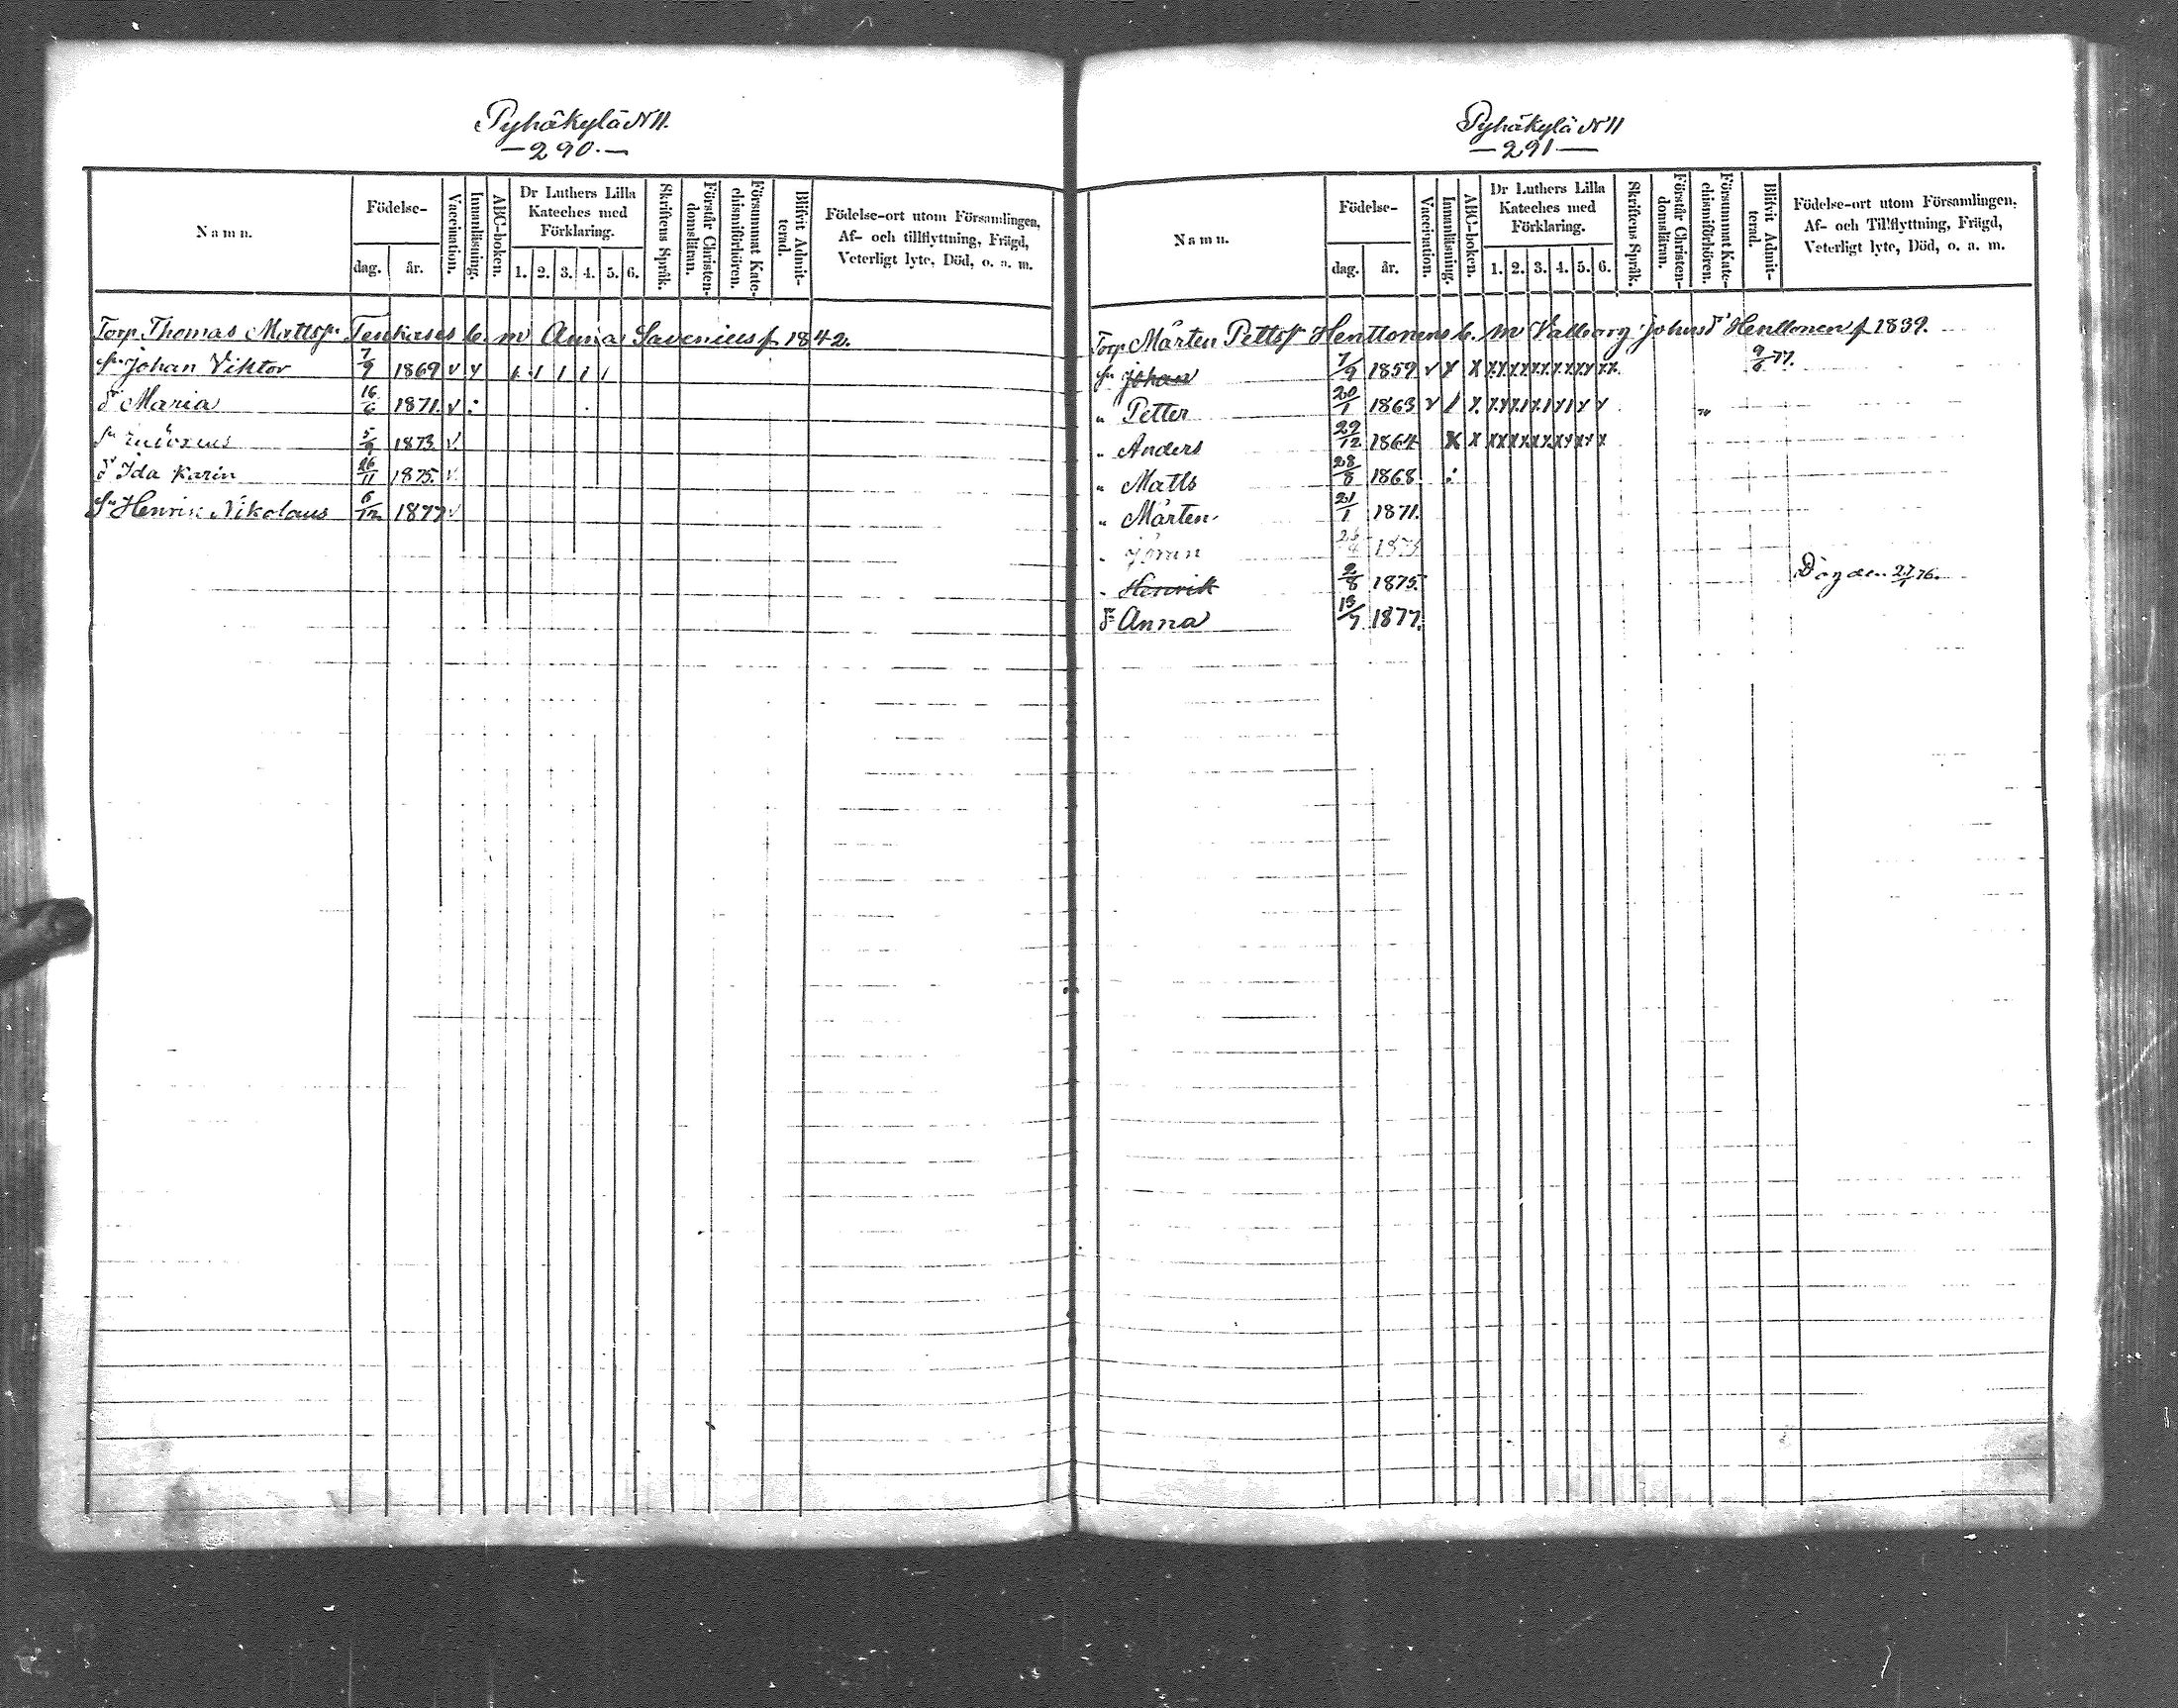 Pyhäkylä N 11.
— 290. —
Namn.
Födelse-
dag.
år.
Vaccination.
Innanläsning.
ABC-boken.
Dr Luthers Lilla
Kateches med
Förklaring.
1. 2. 3. 4. 5. 6.
Skriftens Språk.
Förstår Christen-
domsläran.
Försummat Kate-
chismiförhören.
Blifvit Admit-
terad.
Födelse-ort utom Församlingen,
Af- och tillflyttning, Frägd,
Veterligt lyte, Död, o. a. m.
Torp. Thomas Mattsn b. m Anna Savenius f. 1842.
sn Johan Viktor 7/9 1869 v v
dr Maria 16/6 1871. v
sn 5/9 1873. v
dr Ida Karin 26/11 1875. v
sn Henrik Nikolaus 6/12 1877 v
Pyhäkylä N 11
— 291 —
Namn.
Födelse-
dag.
år.
Vaccination.
Innanläsning.
ABC-boken.
Dr Luthers Lilla
Kateches med
Förklaring.
1. 2. 3. 4. 5. 6.
Skriftens Språk.
Förstår Christen-
domsläran.
Försummat Kate-
chismiförhören.
Blifvit Admit-
terad.
Födelse-ort utom Församlingen,
Af- och Tillflyttning, Frägd,
Veterligt lyte, Död, o. a. m.
Torp. Mårten Petts Henttonens b. m Valborg Johns dr Henttonen f 1839.
sn Johan 7/9 1859 v 9/6 77.
" Petter 20/1 1863 v
" Anders 29/12 1864
" Matts 28/8 1868
" Mårten 21/1 1871.
" Göran
" Henrik 2/8 1875. Dog den 27/1 76.
dr Anna 13/7 1877.